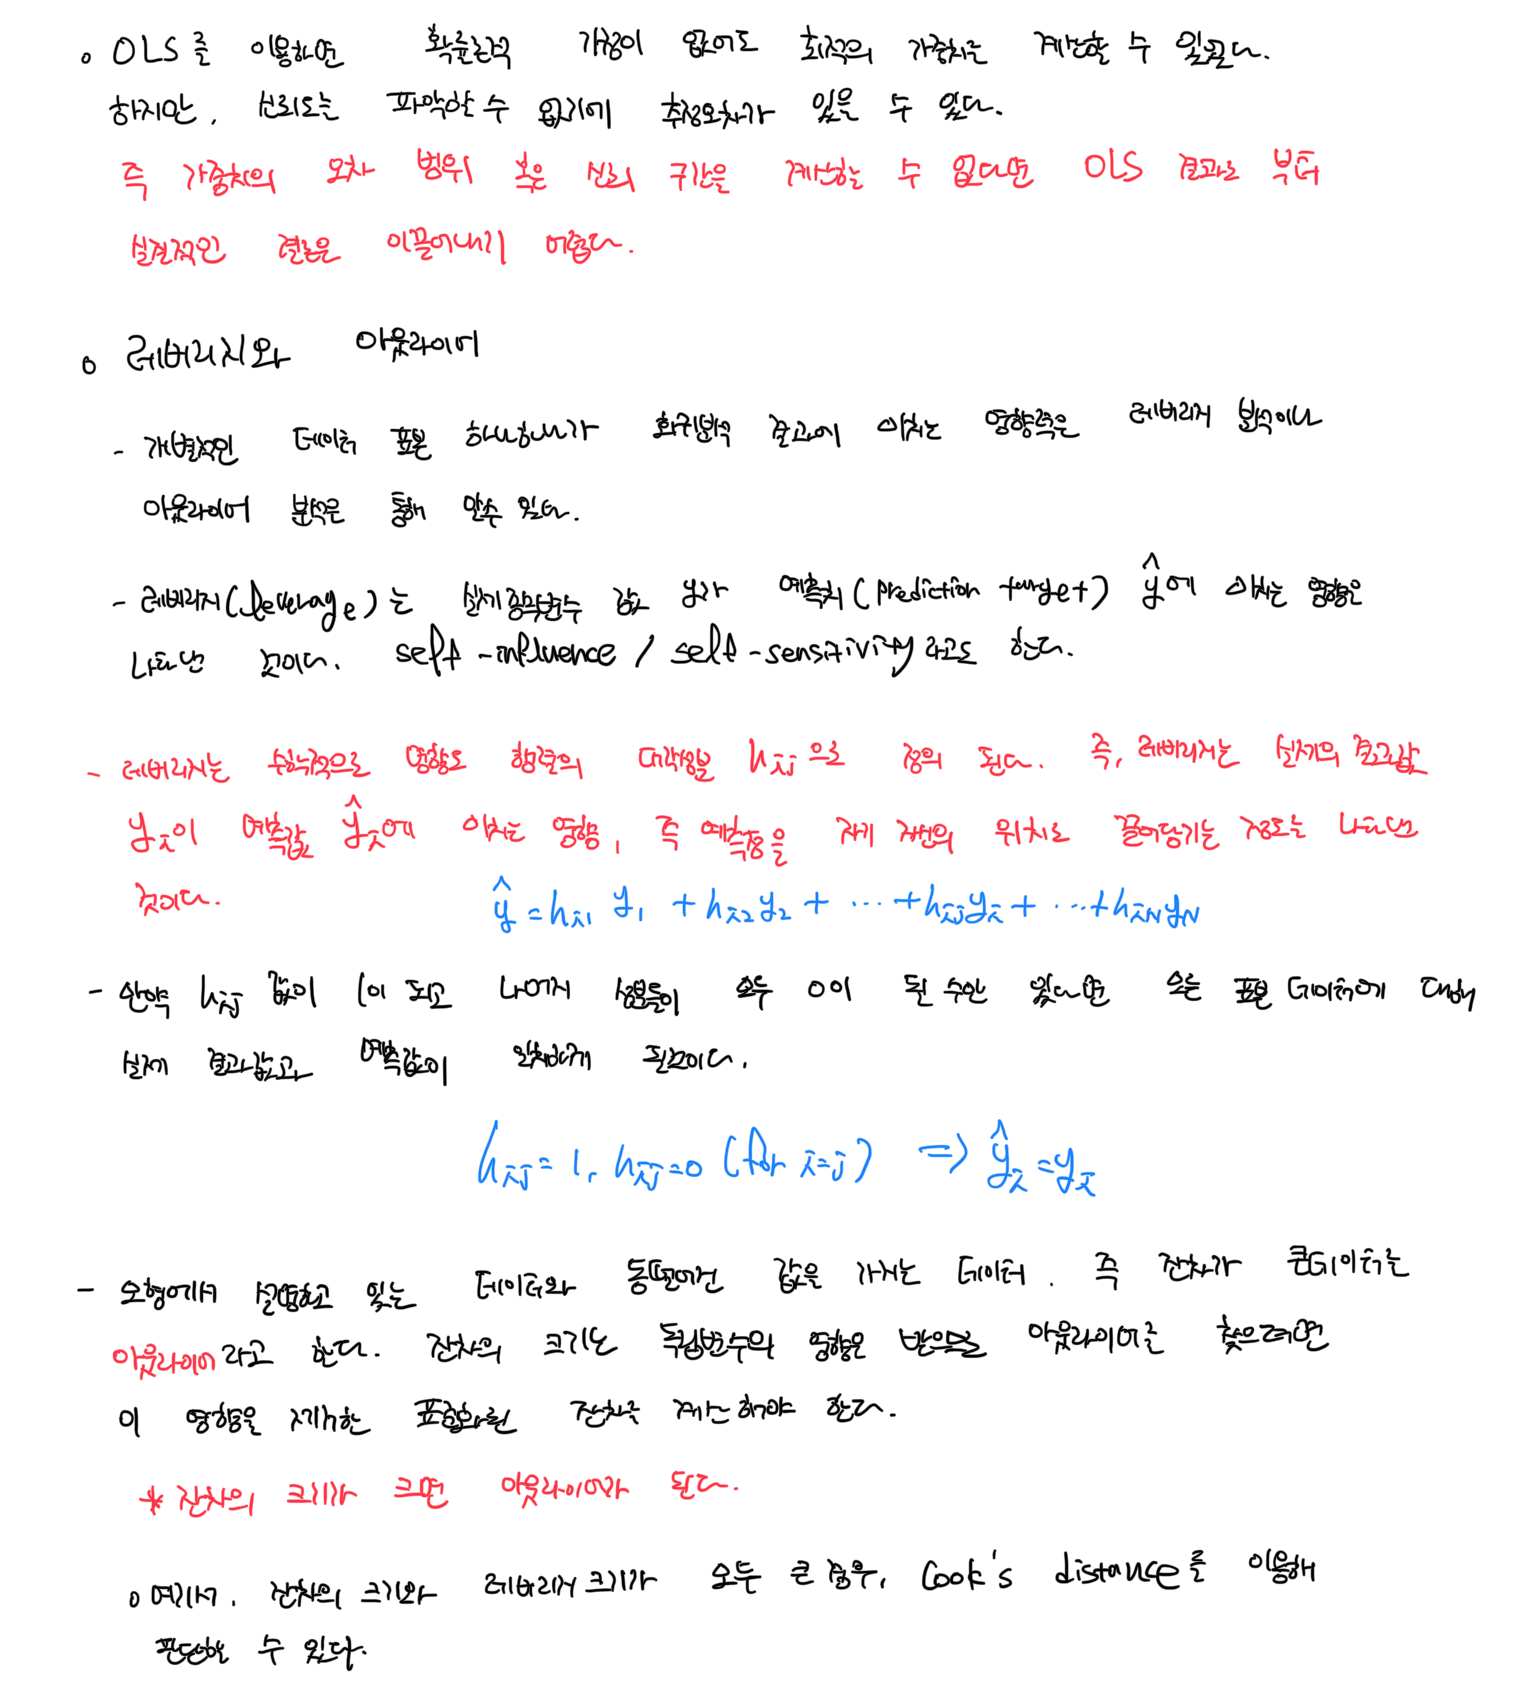 o OLS를 이용하면 확률론적 가정이 없어도 최적의 가중치를 계산할 수 있었다.
하지만, 신뢰도는 파악할 수 없기에 추정오차가 있을 수 있다.
즉 가중치의 오차 범위 혹은 신뢰 구간을 계산할 수 없다면 OLS 결과로 부터
실질적인 결론을 이끌어내기 어렵다.
o 레버리지와 아웃라이어
- 개별적인 데이터 표본 하나하나가 회귀분석 결과에 미치는 영향력은 레버리지 분석이나
아웃라이어 분석을 통해 알수 있다.
- 레버리지(leverage)는 실제 종속변수 값 y가 예측치(prediction target) ŷ에 미치는 영향을
나타낸 것이다. self-influence / self-sensitivity 라고도 한다.
- 레버리지는 수학적으로 영향도 행렬의 대각성분 hij으로 정의 된다. 즉, 레버리지는 실제의 결과값
yi이 예측값 ŷi에 미치는 영향, 즉 예측점을 자기 자신의 위치로 끌어당기는 정도를 나타낸
것이다. ŷ = hi1 y1 + hi2 y2 + ... + hij yi + ... + hiN yN
- 만약 hij 값이 1이 되고 나머지 성분들이 모두 0이 될 수만 있다면 모든 표본 데이터에 대해
실제 결과값과 예측값이 일치하게 될것이다.
hij = 1, hij = 0 (for i=j) => ŷi = yi
- 모형에서 설명하고 있는 데이터와 동떨어진 값을 가지는 데이터. 즉 잔차가 큰데이터를
아웃라이어라고 한다. 잔차의 크기는 독립변수의 영향을 받으므로 아웃라이어를 찾으려면
이 영향을 제거한 표준화된 잔차를 계산해야 한다.
* 잔차의 크기가 크면 아웃라이어가 된다.
o 여기서, 잔차의 크기와 레버리지 크기가 모두 큰 경우, Cook's distance를 이용해
판단할 수 있다.